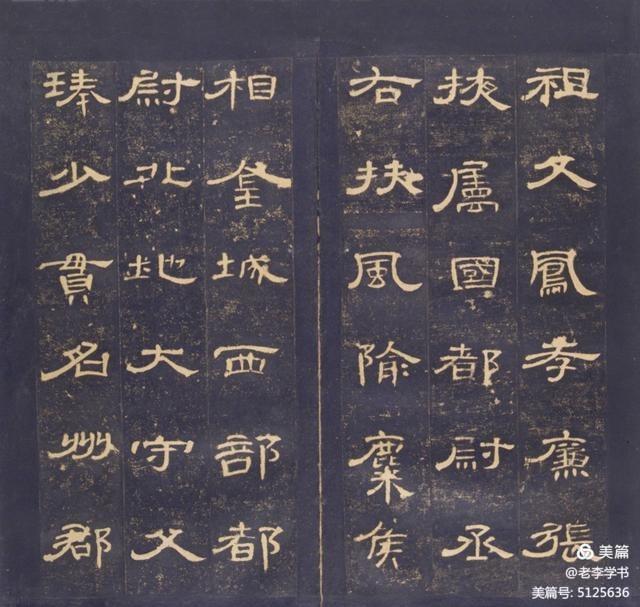 祖父鳳孝廉張
掖屬國都尉丞
右扶風隃麋侯
相金城西部都
尉北地大守父
琫少貫名州郡
美篇
@老李学书
美篇号: 5125636